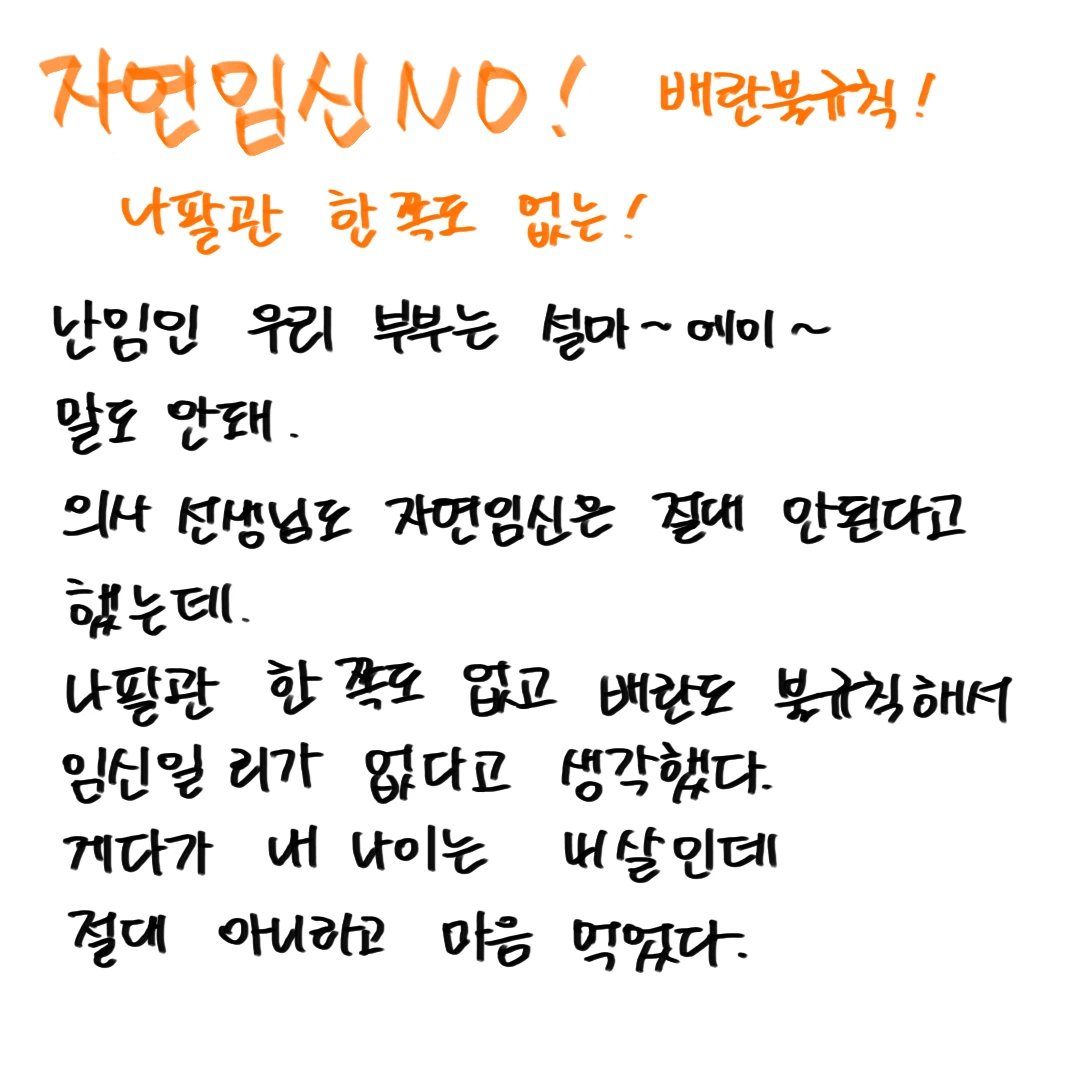 자연임신 NO! 배란불규칙!
나팔관 한쪽도 없는!
난임인 우리 부부는 설마~에이~
말도 안돼.
의사 선생님도 자연임신은 절대 안된다고
했는데.
나팔관 한쪽도 없고 배란도 불규칙해서
임신일 리가 없다고 생각했다.
게다가 내 나이는 살인데
절대 아니라고 마음 먹었다.